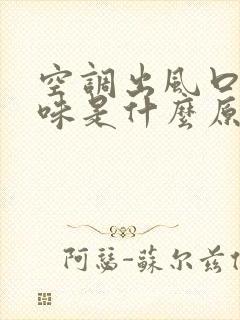 空調出風口
味是什麼原
阿瑟-蘇尔兹